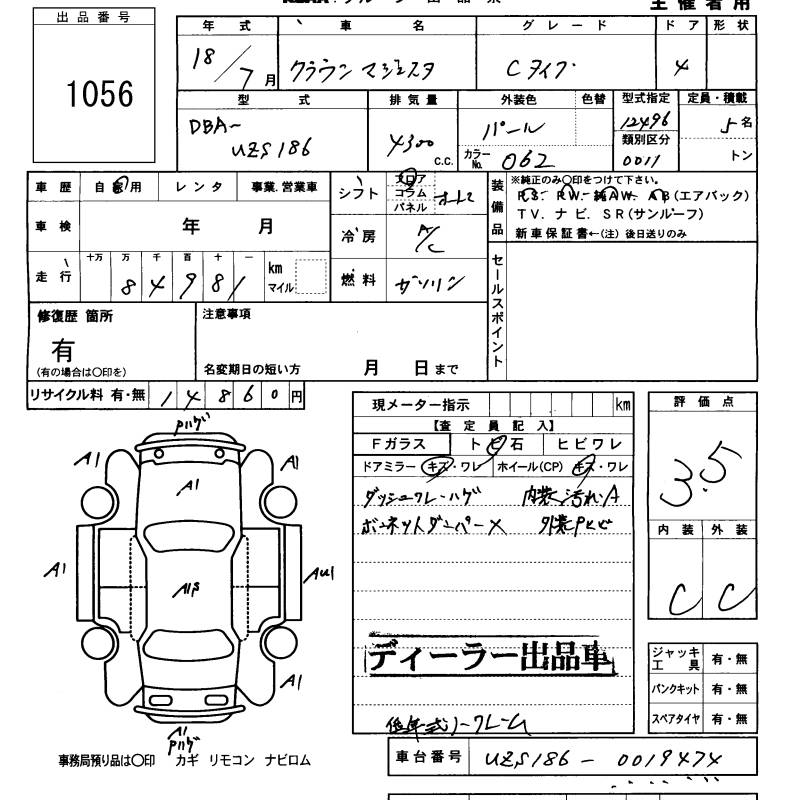 出品番号
1056
主催者用
年式 車名 グレード ドア 形状
18/7月 クラウン マジェスタ Cタイプ 4
型式 排気量 外装色 色替 型式指定 定員・積載
DBA-
UZS186
4300 c.c.
パール
カラーNo. 062
12496
類別区分
0011
5名
トン
車歴 自家用 レンタ 事業.営業車
シフト フロア コラム パネル オートマ
装備品
※純正のみ○印をつけて下さい。
PS. PW. 純AW. AB(エアバック)
TV. ナビ. SR(サンルーフ)
新車保証書←(注)後日送りのみ
車検 年 月
冷房 A/C
走行 十万 万 千 百 十 一 km マイル
84981
燃料 ガソリン
セールスポイント
修復歴 箇所
有
(有の場合は○印を)
注意事項
名変期日の短い方 月 日まで
リサイクル料 有・無 14860円
現メーター指示 km
評価点
3.5
【査定員記入】
Fガラス トビ石 ヒビワレ
ドアミラー キズ・ワレ ホイール(CP) キズ・ワレ
ダッシュワレ・ハゲ 内装汚れA
ボーネットダンパー× 外装Pヒビ
内装 外装
C C
Pハゲ
A1 A1
A1
A1 A1S AU1
A1
A1
Pハゲ
ディーラー出品車
低年式ノークレーム
ジャッキ工具 有・無
パンクキット 有・無
スペアタイヤ 有・無
事務局預り品は○印 カギ リモコン ナビロム
車台番号 UZS186-0019474